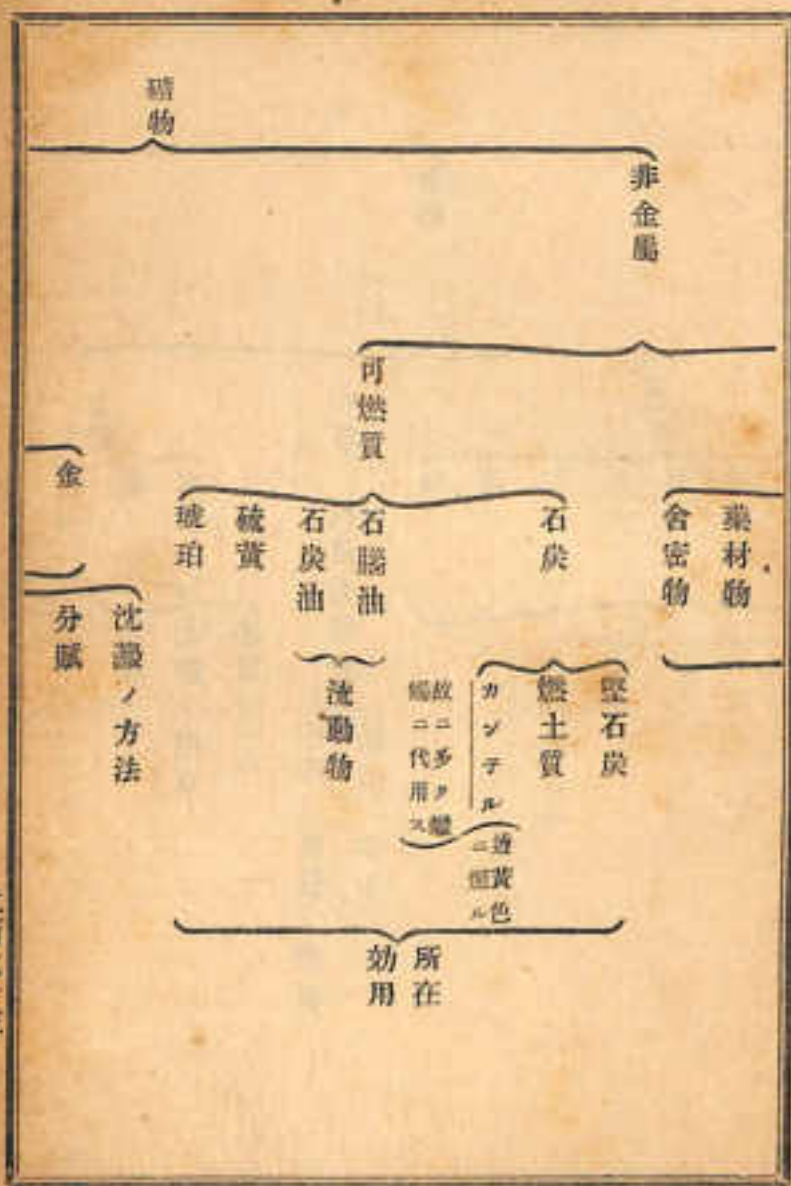 礦物
非金屬
藥材物
舍密物
可燃質
石炭
堅石炭
燃土質
カンテル
故ニ多ク蠟
燭ニ代用ス
石腦油
石炭油
流動物
硫黃
琥珀
所在
効用
金
沈澱ノ方法
分賦